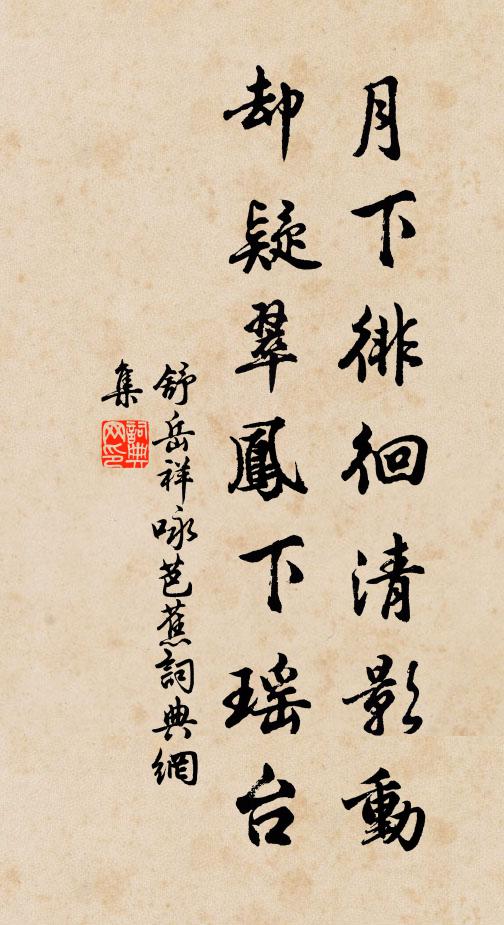 月下徘徊清影動
却疑翠鳳下瑶台
舒岳祥咏芭蕉詞典網
集
詞典
网印